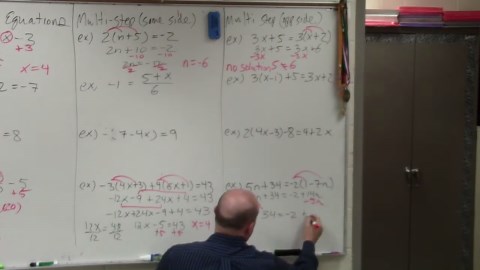 Equations
x - 3
+3
x = 4
= -7
= 8
- 5
+5
Multi-step (same side)
ex) 2(n+5) = -2
2n + 10 = -2
-10 -10
n = -6
ex) -1 = 5 + x
6
7 - 4x) = 9
ex) -3(4x+3) + 4(6x+1) = 43
-12x - 9 + 24x + 4 = 43
-12x + 24x - 9 + 4 = 43
12x = 48
12 12
12x - 5 = 43
+5 +5
x = 4
Multi step (opp side)
ex) 3x + 5 = 3(x + 2)
3x + 5 = 3x + 6
-3x -3x
no solution 5 ≠ 6
ex) 3(x-1) + 5 = 3x + 2
ex) 2(4x-3) - 8 = 4 + 2x
ex) 5n + 34 = -2(1 - 7n)
n + 34 = -2 +
34 = -2 +